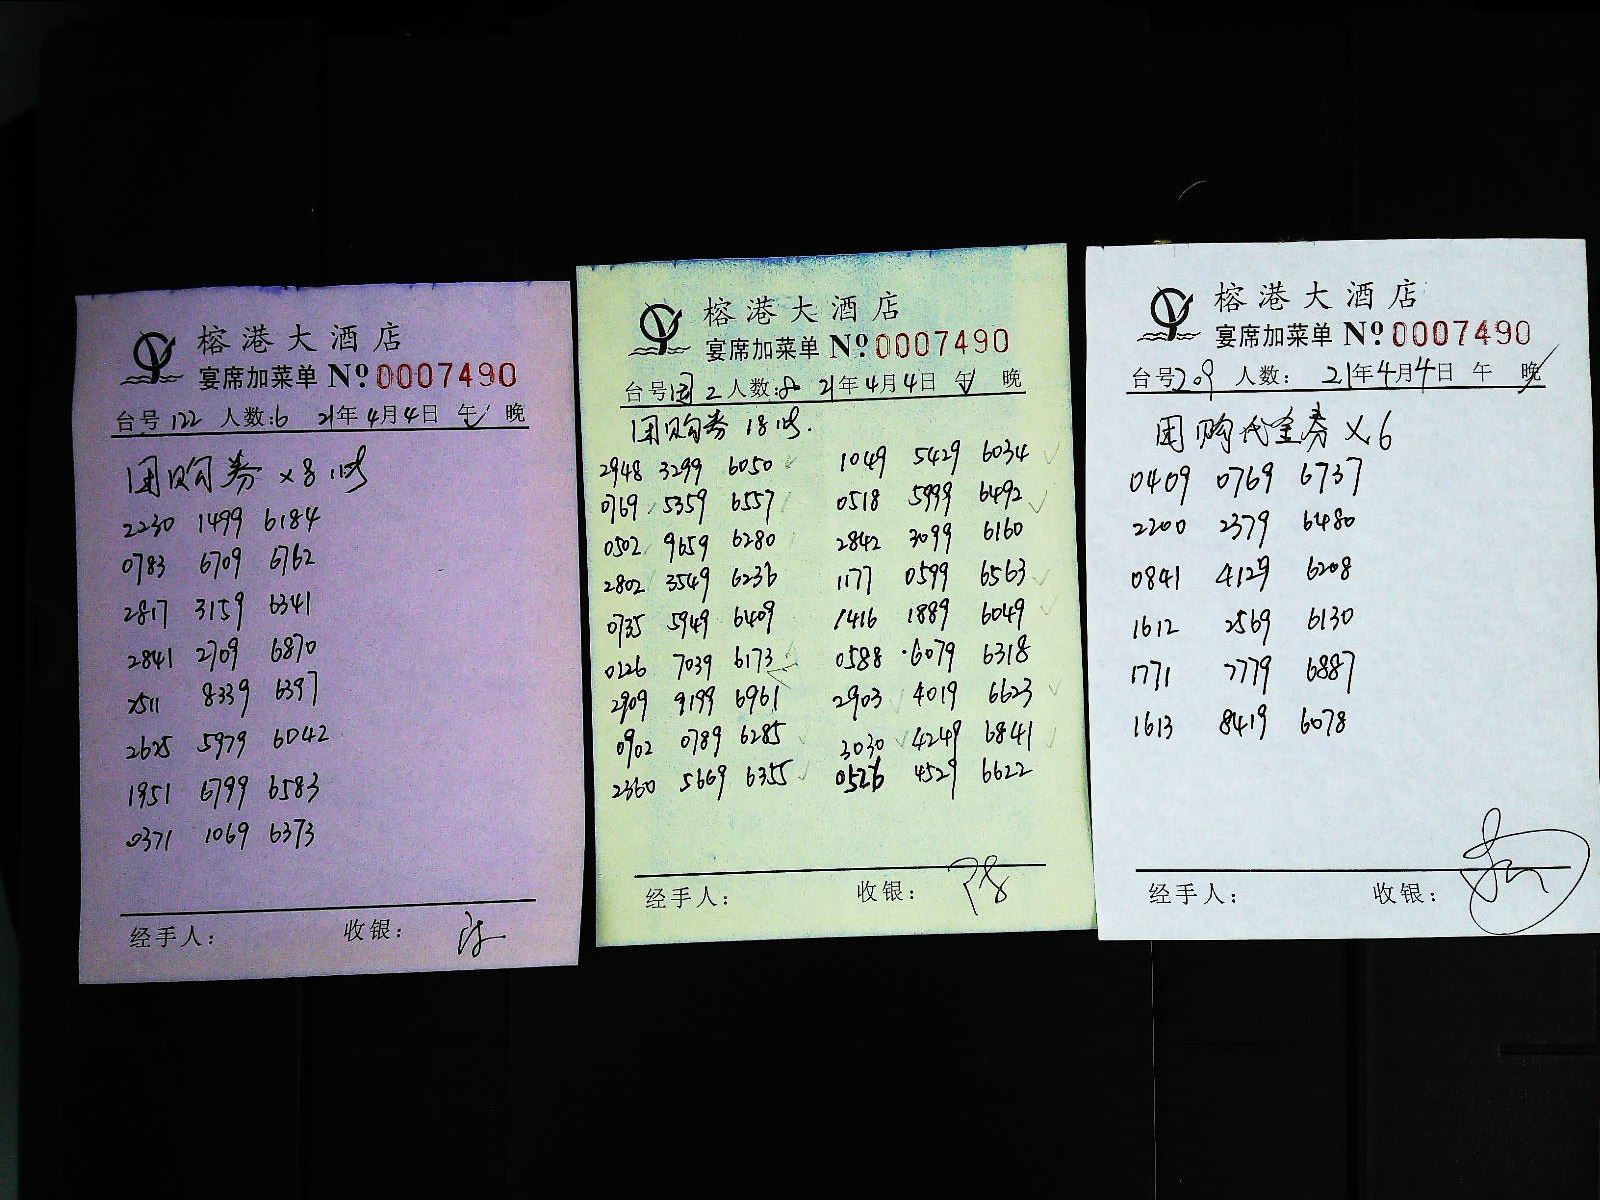 榕港大酒店
宴席加菜单 Nº 0007490
台号 122 人数:6 21年4月4日 午 晚
团购券 x8张
2230 1499 6184
0783 6709 6762
2817 3159 6341
2841 2709 6870
2511 8339 6397
2625 5979 6042
1951 6799 6583
0371 1069 6373
经手人: 收银:
榕港大酒店
宴席加菜单 Nº 0007490
台号 2 人数:8 21年4月4日 午 晚
团购券 18张.
2948 3299 6050 1049 5429 6034
0769 5359 6557 0518 5999 6492
0502 9659 6280 2842 3099 6160
2802 3549 6236 1177 0599 6563
0735 5949 6409 1416 1889 6049
0126 7039 6173 0588 6079 6318
2909 9199 6961 2903 4019 6623
0902 0789 6285 3030 4249 6841
2360 5669 6355 0526 4529 6622
经手人: 收银:
榕港大酒店
宴席加菜单 Nº 0007490
台号 209 人数: 21年4月4日 午 晚
团购代金券 x6
0409 0769 6737
2200 2379 6480
0841 4129 6208
1612 2569 6130
1771 7779 6887
1613 8419 6078
经手人: 收银: